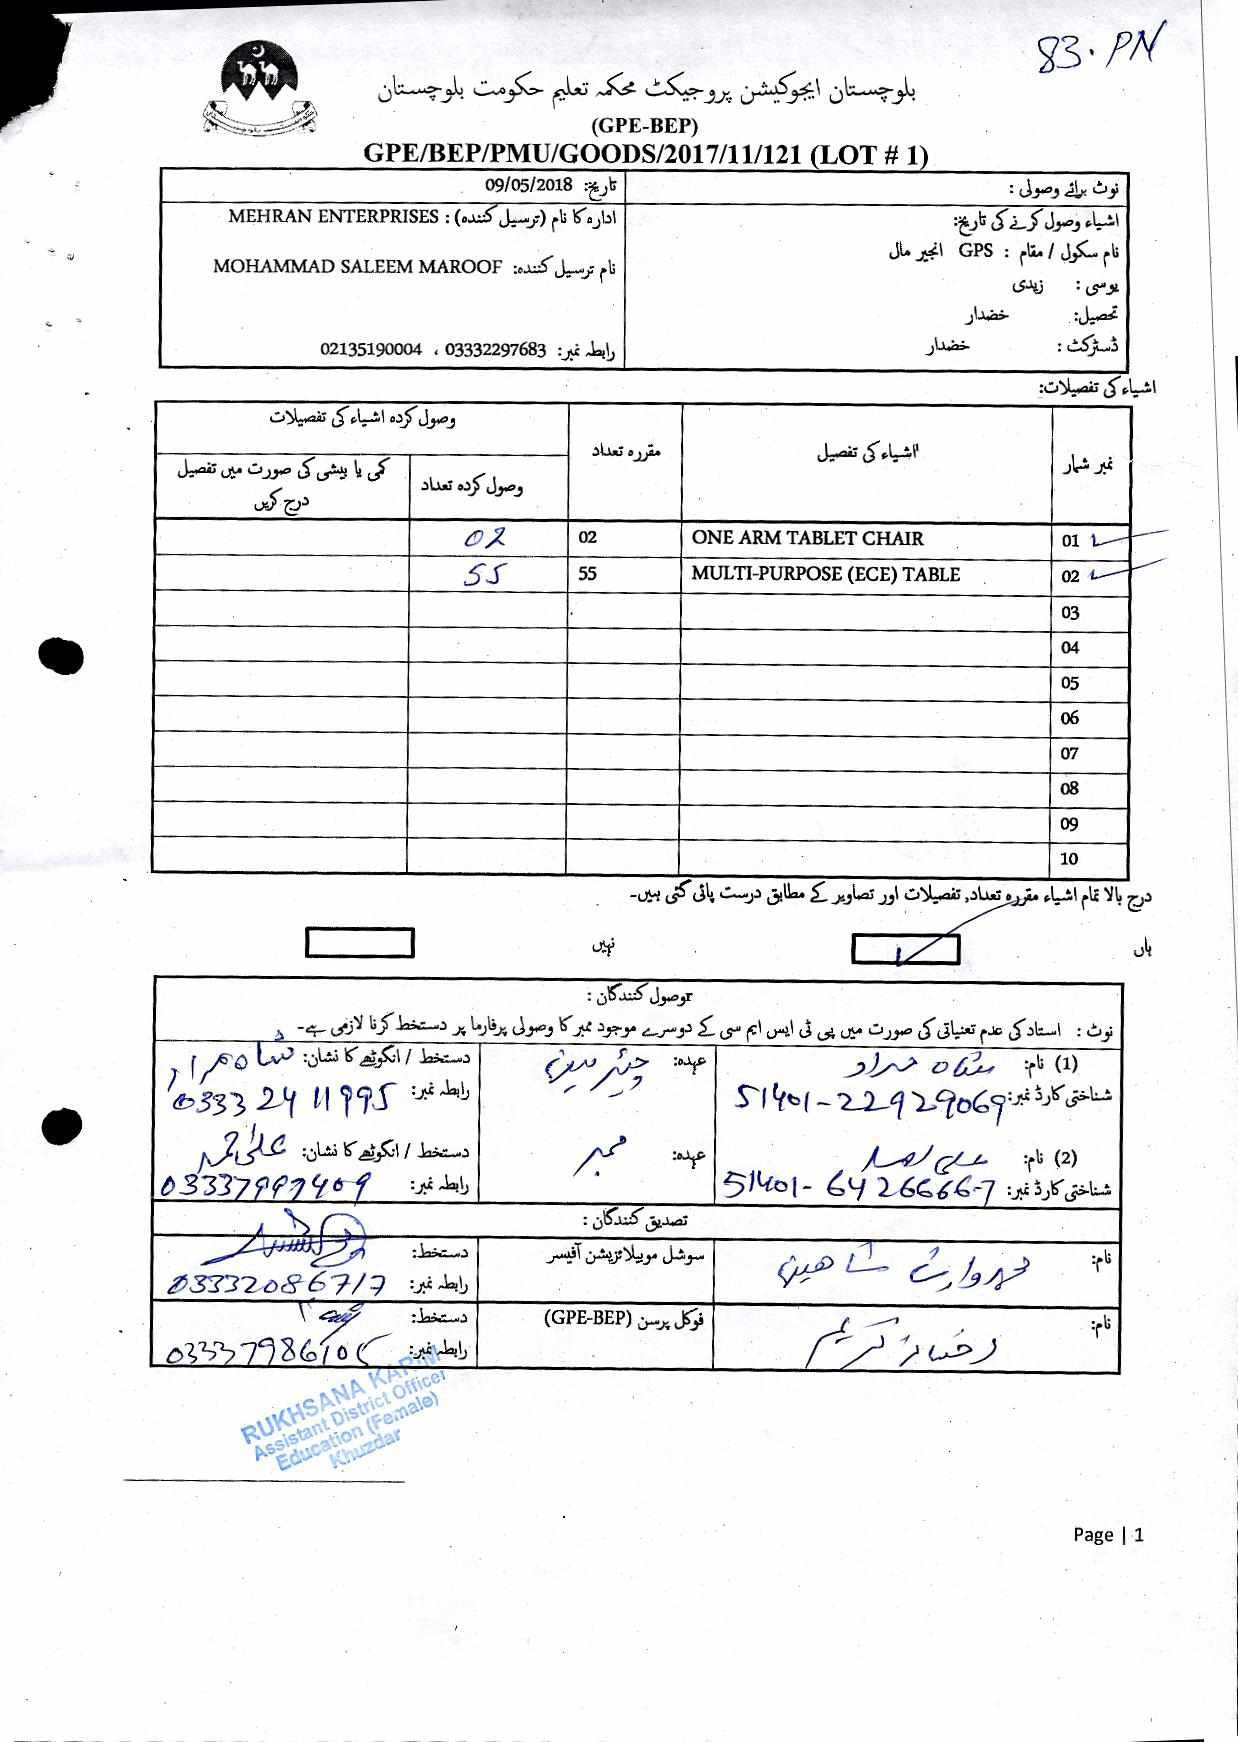 83. PN
بلوچستان ایجوکیشن پروجیکٹ محکمہ تعلیم حکومت بلوچستان
(GPE-BEP)
GPE/BEP/PMU/GOODS/2017/11/121 (LOT # 1)
نوٹ برائے وصولی :
تاریخ: 09/05/2018
اشیاء وصول کرنے کی تاریخ:
نام سکول / مقام : GPS انجیر مال
یوسی : زیدی
تحصیل: خضدار
ڈسٹرکٹ : خضدار
ادارہ کا نام (ترسیل کنندہ) : MEHRAN ENTERPRISES
نام ترسیل کنندہ: MOHAMMAD SALEEM MAROOF
رابطہ نمبر: 03332297683 ، 02135190004
اشیاء کی تفصیلات:
نمبر شمار اشیاء کی تفصیل مقررہ تعداد وصول کردہ اشیاء کی تفصیلات
وصول کردہ تعداد کمی یا بیشی کی صورت میں تفصیل درج کریں
01 ONE ARM TABLET CHAIR 02 02
02 MULTI-PURPOSE (ECE) TABLE 55 55
03
04
05
06
07
08
09
10
درج بالا تمام اشیاء مقررہ تعداد, تفصیلات اور تصاویر کے مطابق درست پائی گئی ہیں۔
ہاں نہیں
وصول کنندگان :
نوٹ : استاد کی عدم تعیناتی کی صورت میں پی ٹی ایس ایم سی کے دوسرے موجود ممبر کا وصولی پرفارما پر دستخط کرنا لازمی ہے۔
(1) نام: شاہ مراد عہدہ: چیئرمین دستخط / انگوٹھے کا نشان: شاہ مراد
شناختی کارڈ نمبر: 51401-22929069 رابطہ نمبر: 03332411995
(2) نام: علی احمد عہدہ: ممبر دستخط / انگوٹھے کا نشان: علی احمد
شناختی کارڈ نمبر: 51401-6426666-7 رابطہ نمبر: 03337997409
تصدیق کنندگان :
نام: محمد وارث شاہین سوشل موبیلائزیشن آفیسر دستخط:
رابطہ نمبر: 03332086717
نام: رخسانہ کریم فوکل پرسن (GPE-BEP) دستخط:
رابطہ نمبر: 03337986105
RUKHSANA KARIM
Assistant District Officer
Education (Female)
Khuzdar
Page | 1